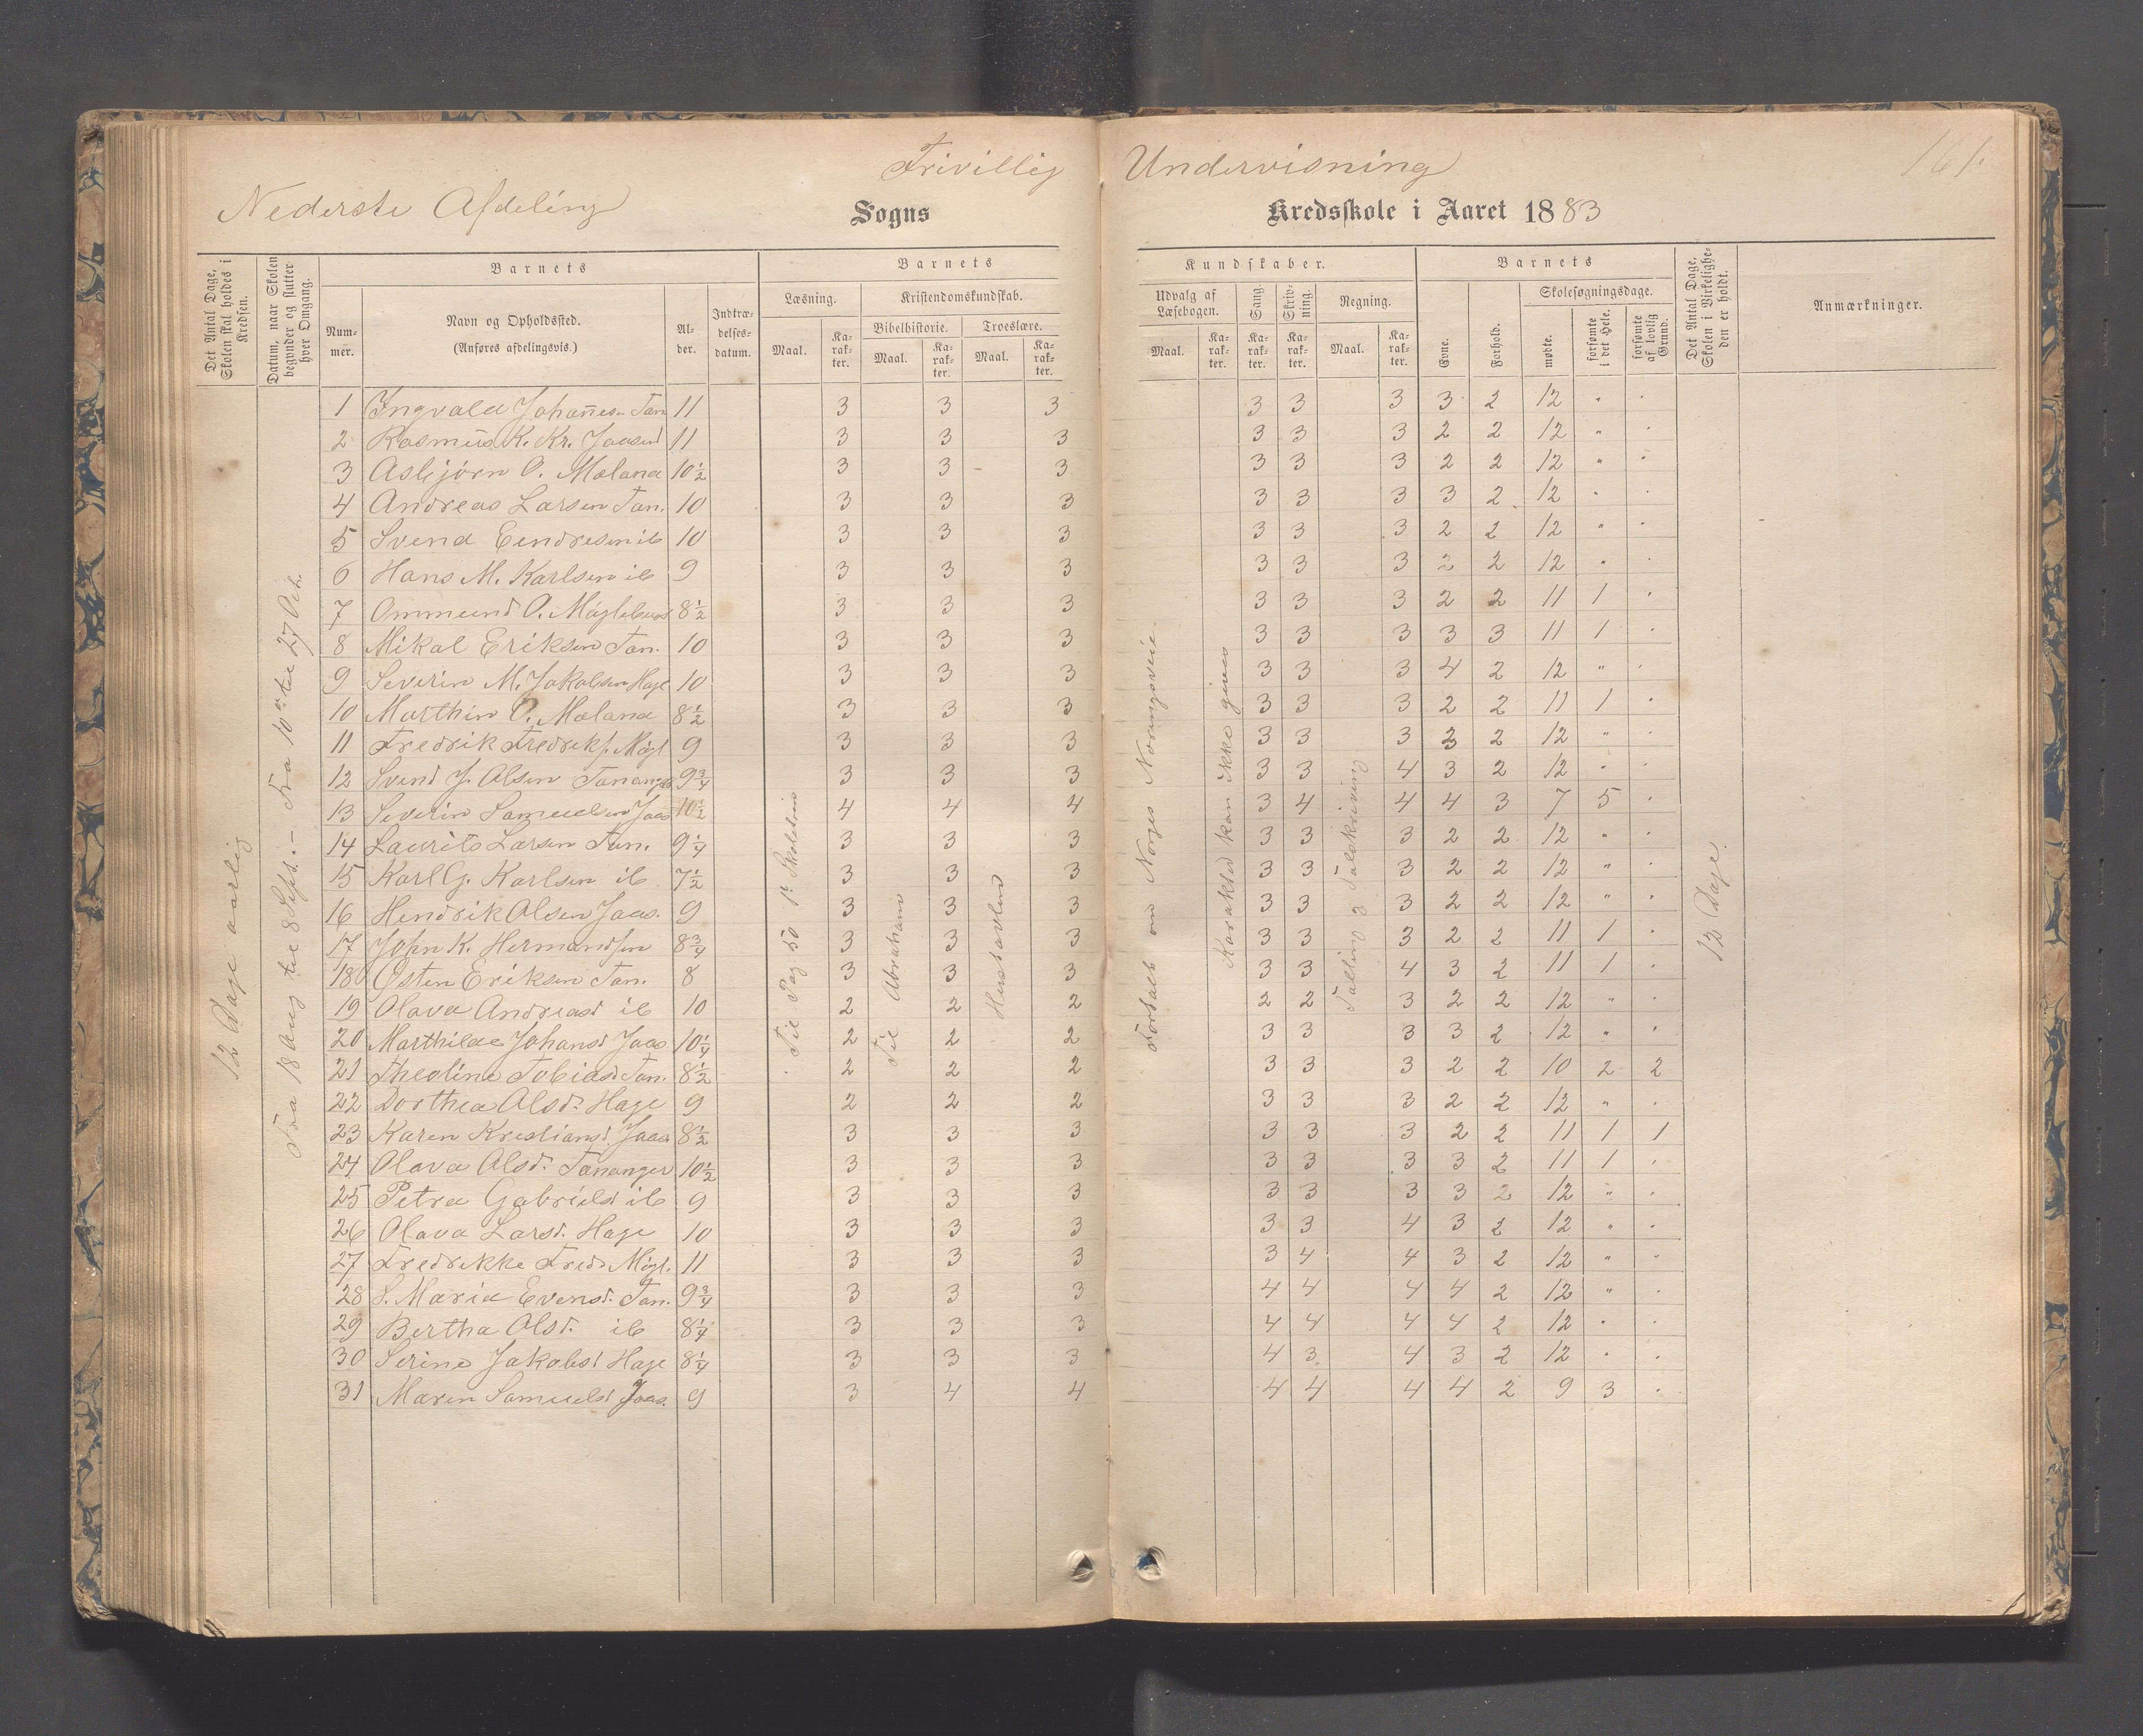 Frivillig Undervisning
161.
Nederste Afdeling Sogns Kredsskole i Aaret 1883
Det Antal Dage, Skolen skal holdes i Kredsen.
Datum, naar Skolen begynder og slutter hver Omgang.
Barnets
Num-mer.
Navn og Opholdssted. (Anføres afdelingsvis.)
Al-der.
Indtræ-delses-datum.
Barnets Kundskaber.
Læsning. Maal. Ka-rak-ter.
Kristendomskundskab.
Bibelhistorie. Maal. Ka-rak-ter.
Troeslære. Maal. Ka-rak-ter.
Udvalg af Læsebogen. Maal. Ka-rak-ter.
Sang. Ka-rak-ter.
Skriv-ning. Ka-rak-ter.
Regning. Maal. Ka-rak-ter.
Barnets
Evne.
Forhold.
Skolesøgningsdage.
mødte.
forsømte i det Hele.
forsømte af lovlig Grund.
Det Antal Dage, Skolen i Virkelighe-den er holdt.
Anmærkninger.
12 Dage aarlig
Fra 18 Aug til 8 Sept. – Fra 10 til 27 Oct.
Til Pag 50 1 Skoletrin
Til Abraham
Fortalt om Norges Næringsveie
Karakter kan ikke gives
Talling & Talskrivning
12 Dage.
1 Ingvald Johannesn Tan 11 3 3 3 3 3 3 3 2 12 " "
2 Rasmus K. Kr. Jaasund 11 3 3 3 3 3 3 2 2 12 " "
3 Asbjørn O. Meland 10½ 3 3 3 3 3 3 2 2 12 " "
4 Andreas Larsen Tan. 10 3 3 3 3 3 3 3 2 12 " "
5 Svend Eendresen ib 10 3 3 3 3 3 3 2 2 12 " "
6 Hans M. Karlsen ib 9 3 3 3 3 3 3 2 2 12 " "
7 Ommund O. Møglebust 8½ 3 3 3 3 3 3 2 2 11 1 "
8 Mikal Eriksen Tan. 10 3 3 3 3 3 3 3 3 11 1 "
9 Severin M. Jakobsen Hage 10 3 3 3 3 3 3 4 2 12 " "
10 Marthin O. Meland 8½ 3 3 3 3 3 3 2 2 11 1 "
11 Fredrik Fredriks. Møgl 9 3 3 3 3 3 3 2 2 12 " "
12 Svend J. Olsen Tananger 9¾ 3 3 3 3 3 4 3 2 12 " "
13 Severin Samuelsen Jaas 10½ 4 4 4 3 4 4 4 3 7 5 "
14 Laurits Larsen Tan. 9¼ 3 3 3 3 3 3 2 2 12 " "
15 Karl G. Karlsen ib 7½ 3 3 3 3 3 3 2 2 12 " "
16 Hendrik Olsen Jaas. 9 3 3 3 3 3 3 2 2 12 " "
17 John K. Hermandsen 8¾ 3 3 3 3 3 3 2 2 11 1 "
18 Østen Eriksen Tan. 8 3 3 3 3 3 4 3 2 11 1 "
19 Olava Andreasd ib 10 2 2 2 2 2 3 2 2 12 " "
20 Marthilde Johansd Jaas. 10¼ 2 2 2 3 3 3 3 2 12 " "
21 Theoline Tobiasd Tan. 8½ 2 2 2 3 3 3 2 2 10 2 2
22 Dorthea Olsd. Hage 9 2 2 2 3 3 3 2 2 12 " "
23 Karen Kristiansd. Jaas 8½ 3 3 3 3 3 3 2 2 11 1 1
24 Olava Olsd. Tananger 10½ 3 3 3 3 3 3 3 2 11 1 "
25 Petra Gabrielsd ib 9 3 3 3 3 3 3 3 2 12 " "
26 Olava Larsd. Hage 10 3 3 3 3 3 4 3 2 12 " "
27 Fredrikke Freds Møgl. 11 3 3 3 3 4 4 3 2 12 " "
28 S. Maria Evensd. Tan. 9¾ 3 3 3 4 4 4 4 2 12 " "
29 Bertha Olsd. ib 8¼ 3 3 3 4 4 4 4 2 12 " "
30 Serine Jakobsd Hage 8¼ 3 3 3 4 3 4 3 2 12 " "
31 Maren Samuelsd Jaas. 9 3 4 4 4 4 4 4 2 9 3 "